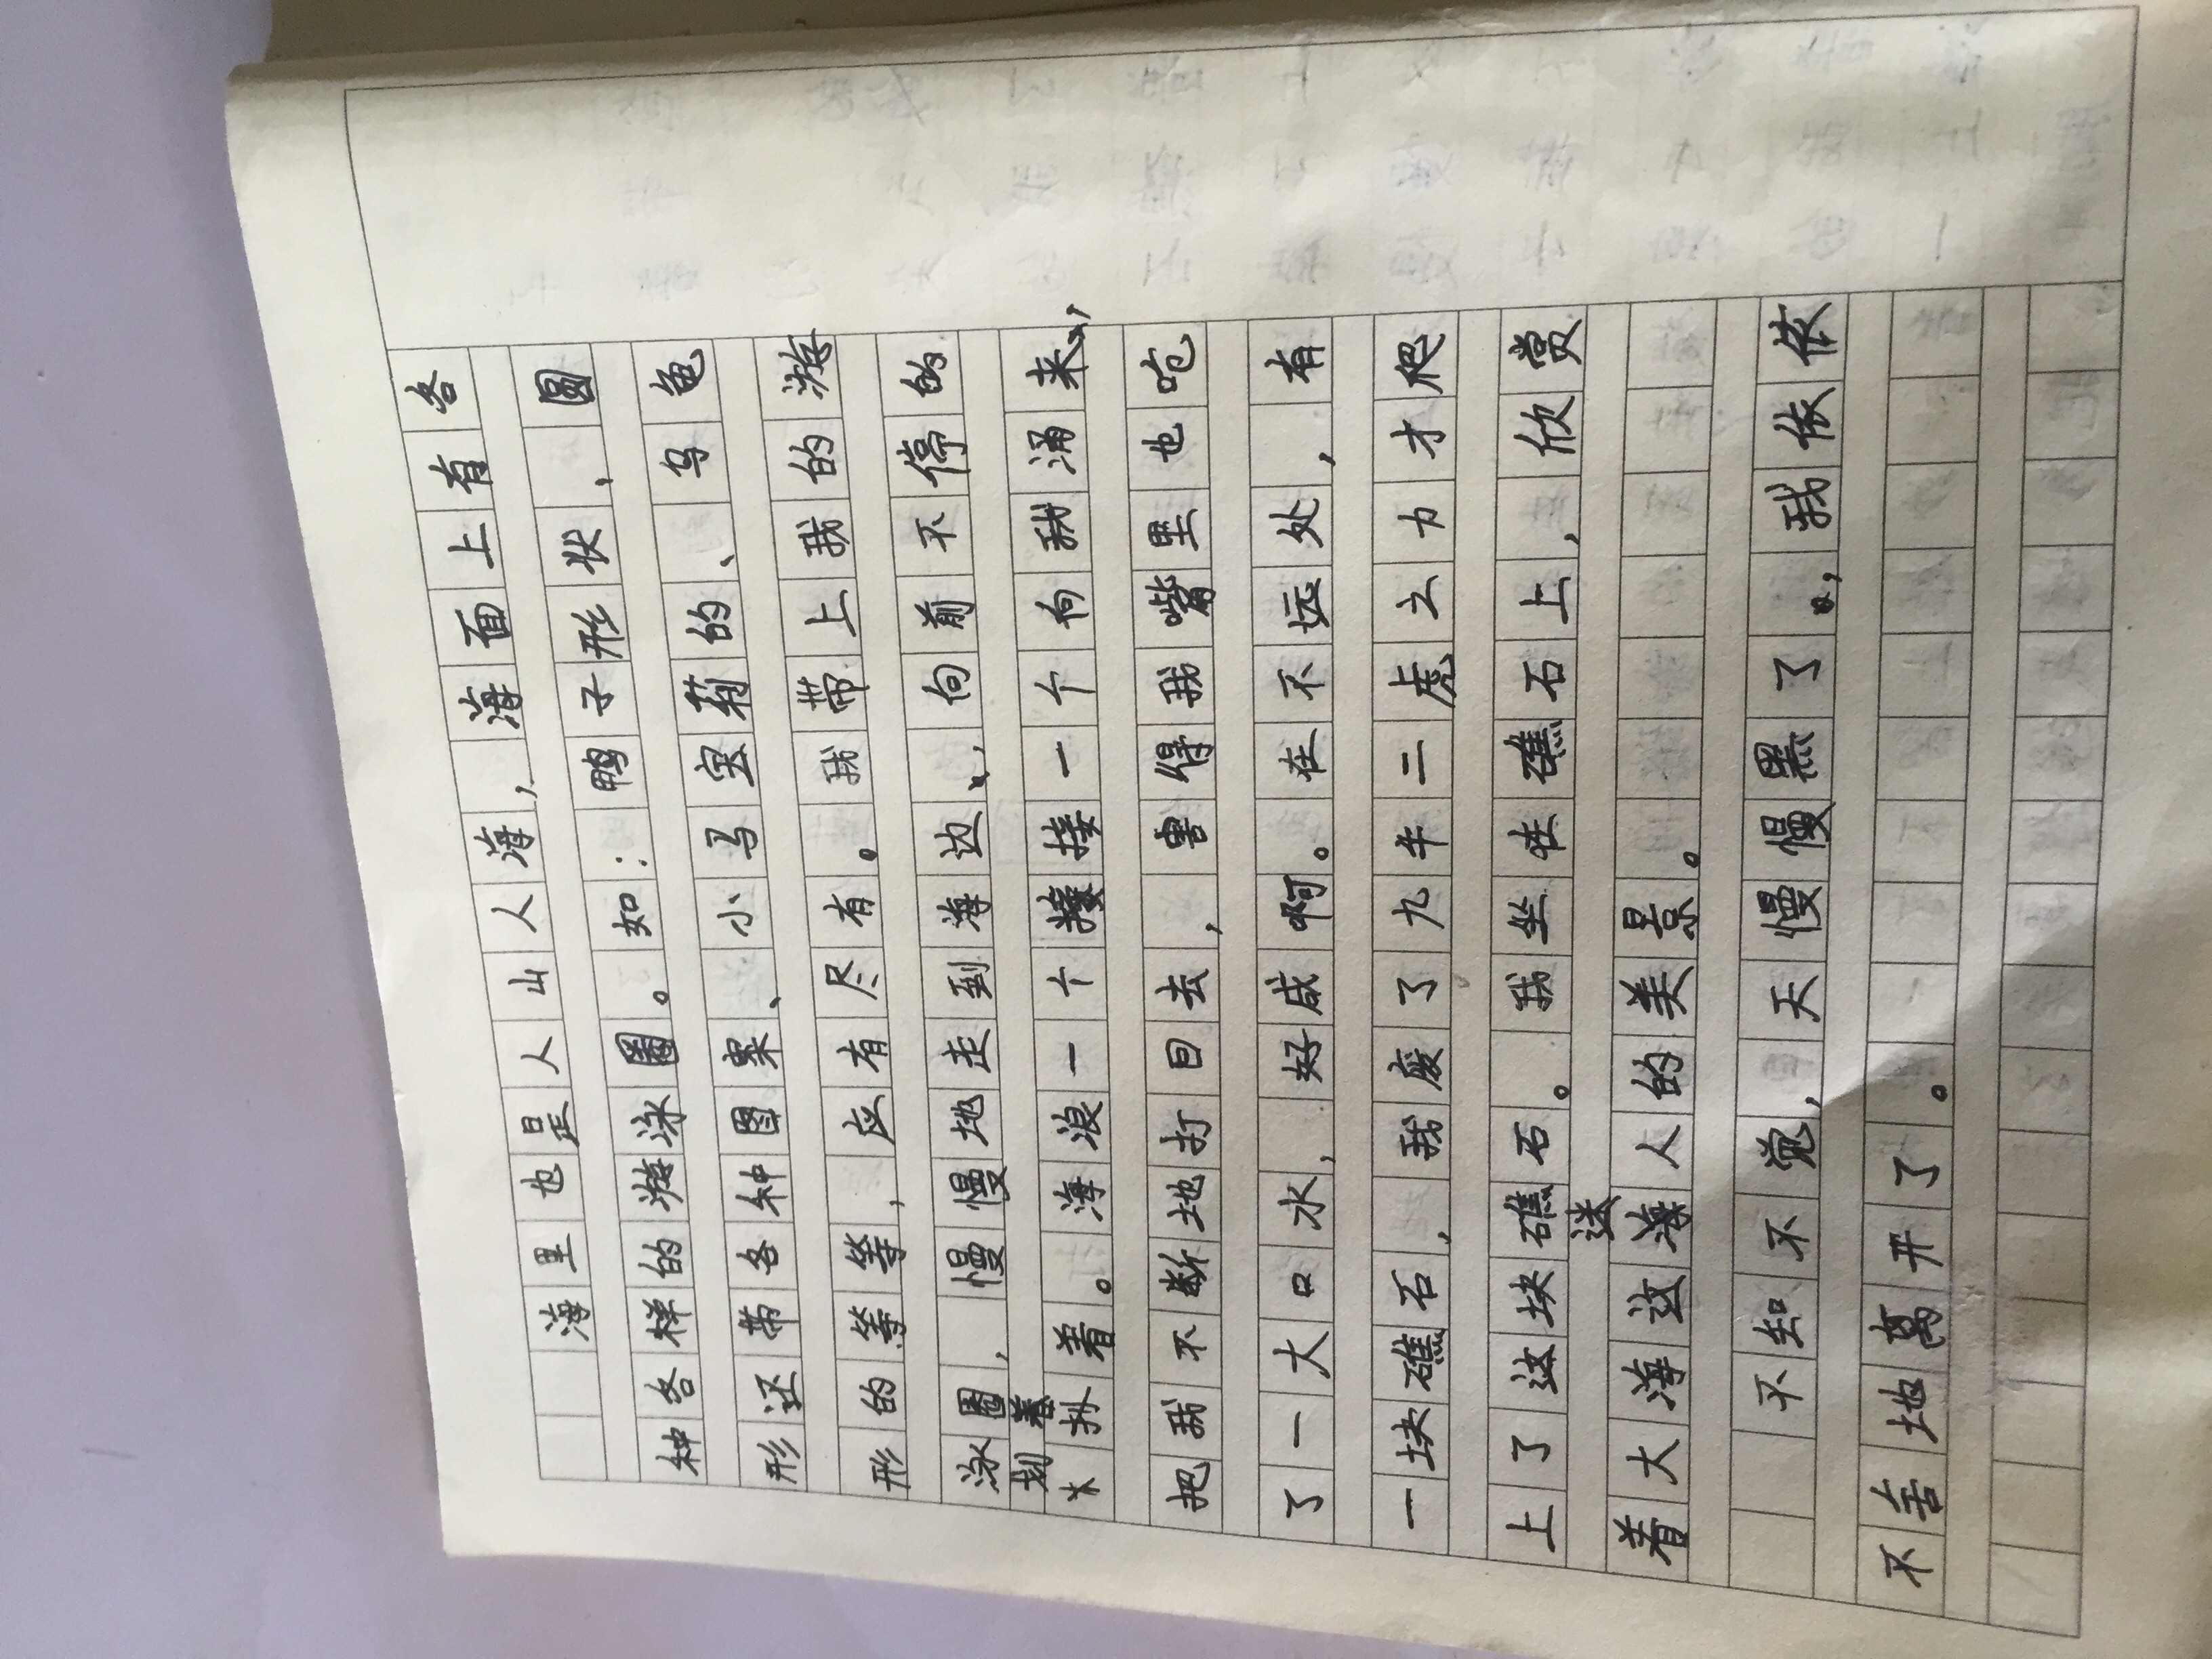 海里也是人山人海，海面上有各
种各样的游泳圈。如：鸭子形状、圆
形还带各种图案、小马宝莉的、乌龟
形的等等，应有尽有。我带上我的游
泳圈，慢慢地走到海边，向前不停的
划着
扑着。海浪一个接接一个向我涌来，
把我不断地打回去，害得我嘴里也呛
了一大口水，好咸啊。在不远处，有
一块礁石，我废了九牛二虎之力才爬
上了这块礁石。我坐在礁石上，欣赏
迷
着大海这海人的美景。
不知不觉，天慢慢黑了，我依依
不舍地离开了。